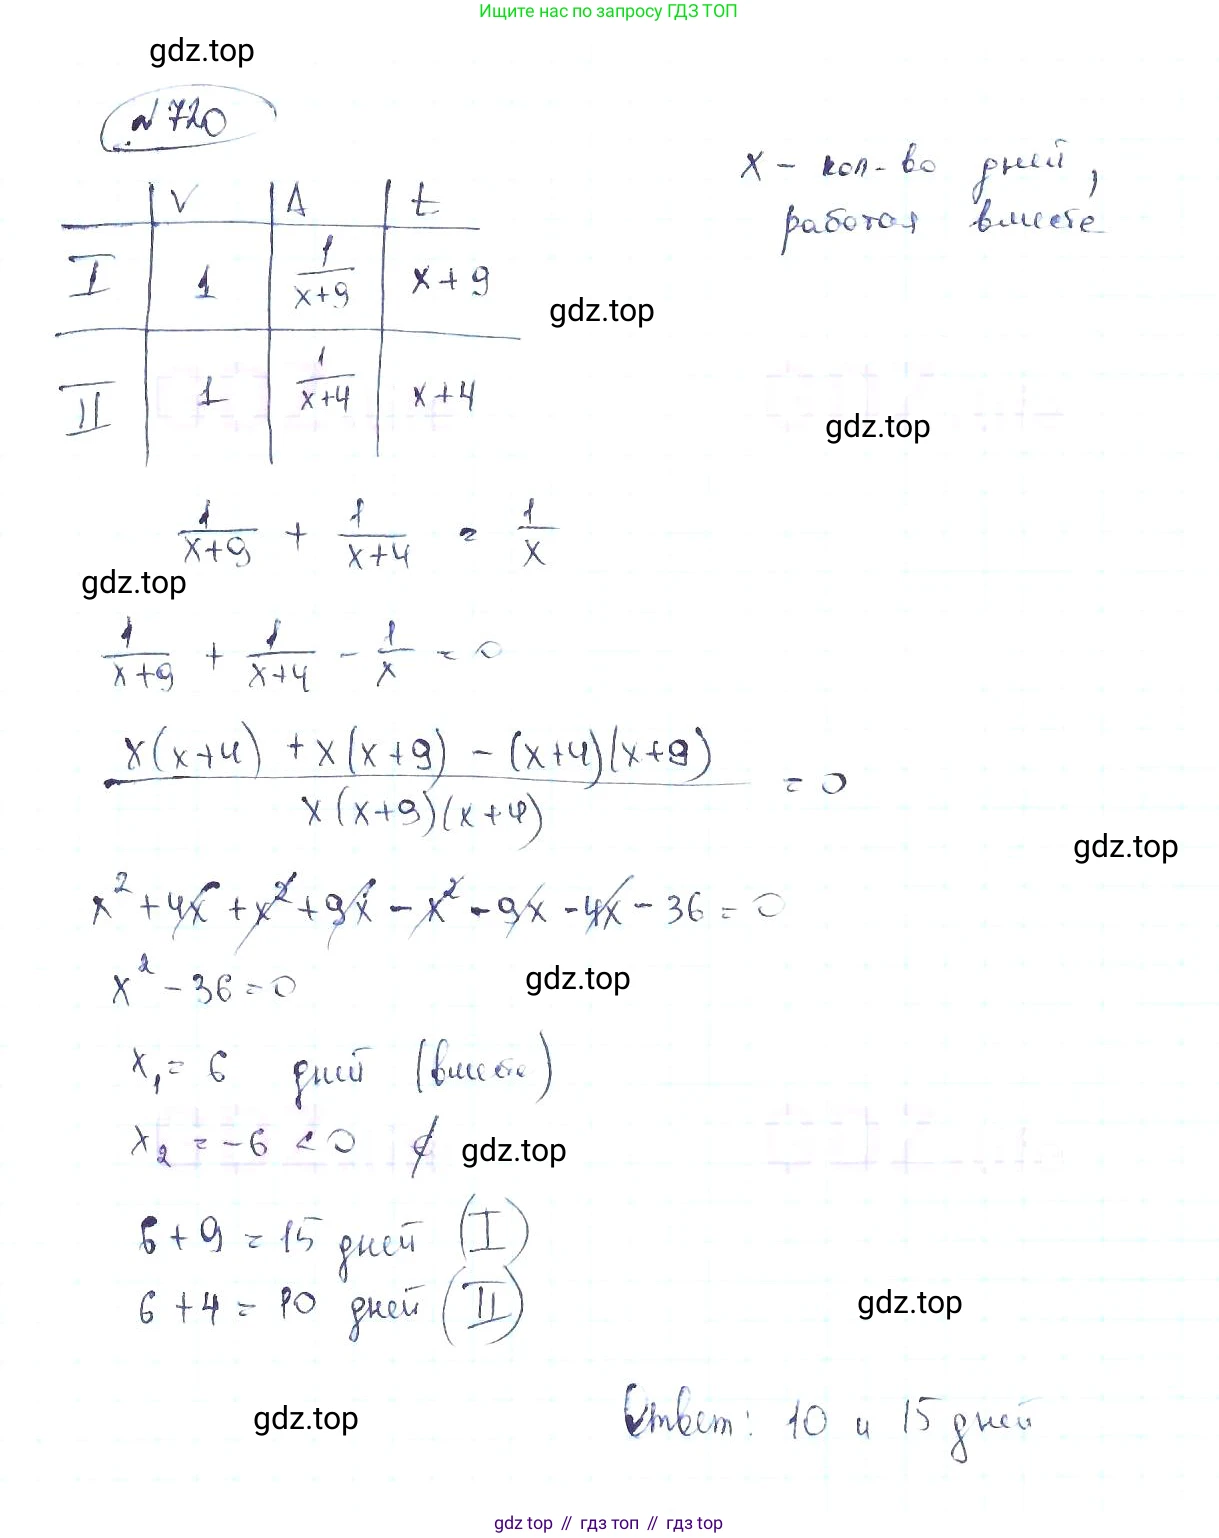 Ищите нас по запросу ГДЗ ТОП
gdz.top
№ 720
x - кол-во дней,
работая вместе
V A t
I 1 1/(x+9) x+9
gdz.top
II 1 1/(x+4) x+4
gdz.top
1/(x+9) + 1/(x+4) = 1/x
gdz.top
1/(x+9) + 1/(x+4) - 1/x = 0
(x(x+4) + x(x+9) - (x+4)(x+9))/(x(x+9)(x+4)) = 0
gdz.top
x² + 4x + x² + 9x - x² - 9x - 4x - 36 = 0
x² - 36 = 0
gdz.top
x₁ = 6 дней (вместе)
x₂ = -6 < 0 ∉
gdz.top
6 + 9 = 15 дней (I)
6 + 4 = 10 дней (II)
gdz.top
gdz.top
Ответ: 10 и 15 дней
gdz.top // гдз топ // гдз top